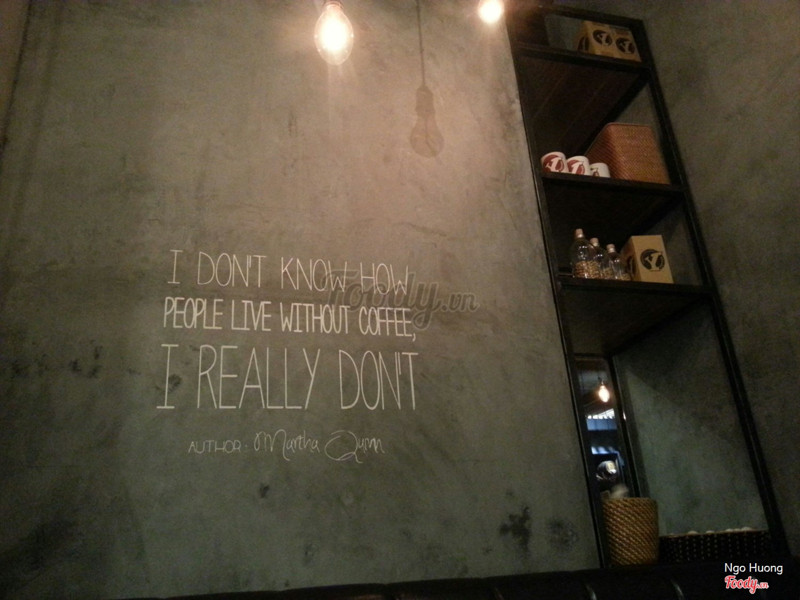 I DON'T KNOW HOW
PEOPLE LIVE WITHOUT COFFEE,
I REALLY DON'T
AUTHOR: Martha Quinn
foody.vn
Ngo Huong
Foody.vn